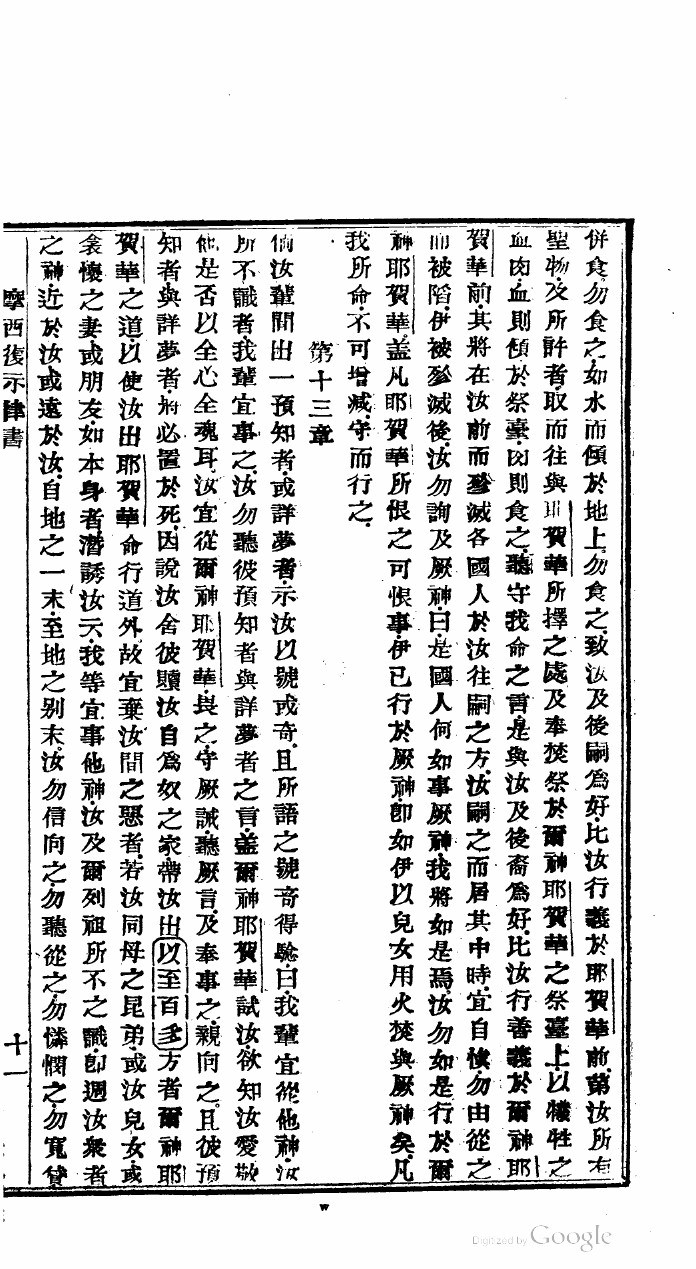 併食勿食之如水而傾於地上勿食之致汝及後嗣爲好比汝行義於耶賀華前第汝所有
聖物及所許者取而往與耶賀華所擇之處及奉焚祭於爾神耶賀華之祭臺上以犧牲之
血肉血則傾於祭臺肉則食之聽守我命之言是與汝及後裔爲好比汝行善義於爾神耶
賀華前其將在汝前而殄滅各國人於汝往嗣之方汝嗣之而居其中時宜自慎勿由從之
而被陷伊被殄滅後汝勿詢及厥神曰是國人何如事厥神我將如是焉汝勿如是行於爾
神耶賀華蓋凡耶賀華所恨之可恨事伊已行於厥神卽如伊以兒女用火焚與厥神矣凡
我所命不可增減守而行之
第十三章
倘汝輩間出一預知者或詳夢者示汝以號或奇且所語之號奇得驗曰我輩宜從他神汝
所不識者我輩宜事之汝勿聽彼預知者與詳夢者之言蓋爾神耶賀華試汝欲知汝愛敬
他是否以全心全魂耳汝宜從爾神耶賀華畏之守厥誡聽厥言及奉事之親向之且彼預
知者與詳夢者將必置於死因說汝舍彼贖汝自爲奴之家帶汝出以至百多方者爾神耶
賀華之道以使汝出耶賀華命行道外故宜棄汝間之惡者若汝同母之昆弟或汝兒女或
衾懷之妻或朋友如本身者潛誘汝云我等宜事他神汝及爾列祖所不之識卽週汝衆者
之神近於汝或遠於汝自地之一末至地之別末汝勿信向之勿聽從之勿憐憫之勿寬貸
摩西復示律書
十一
Digitized by Google